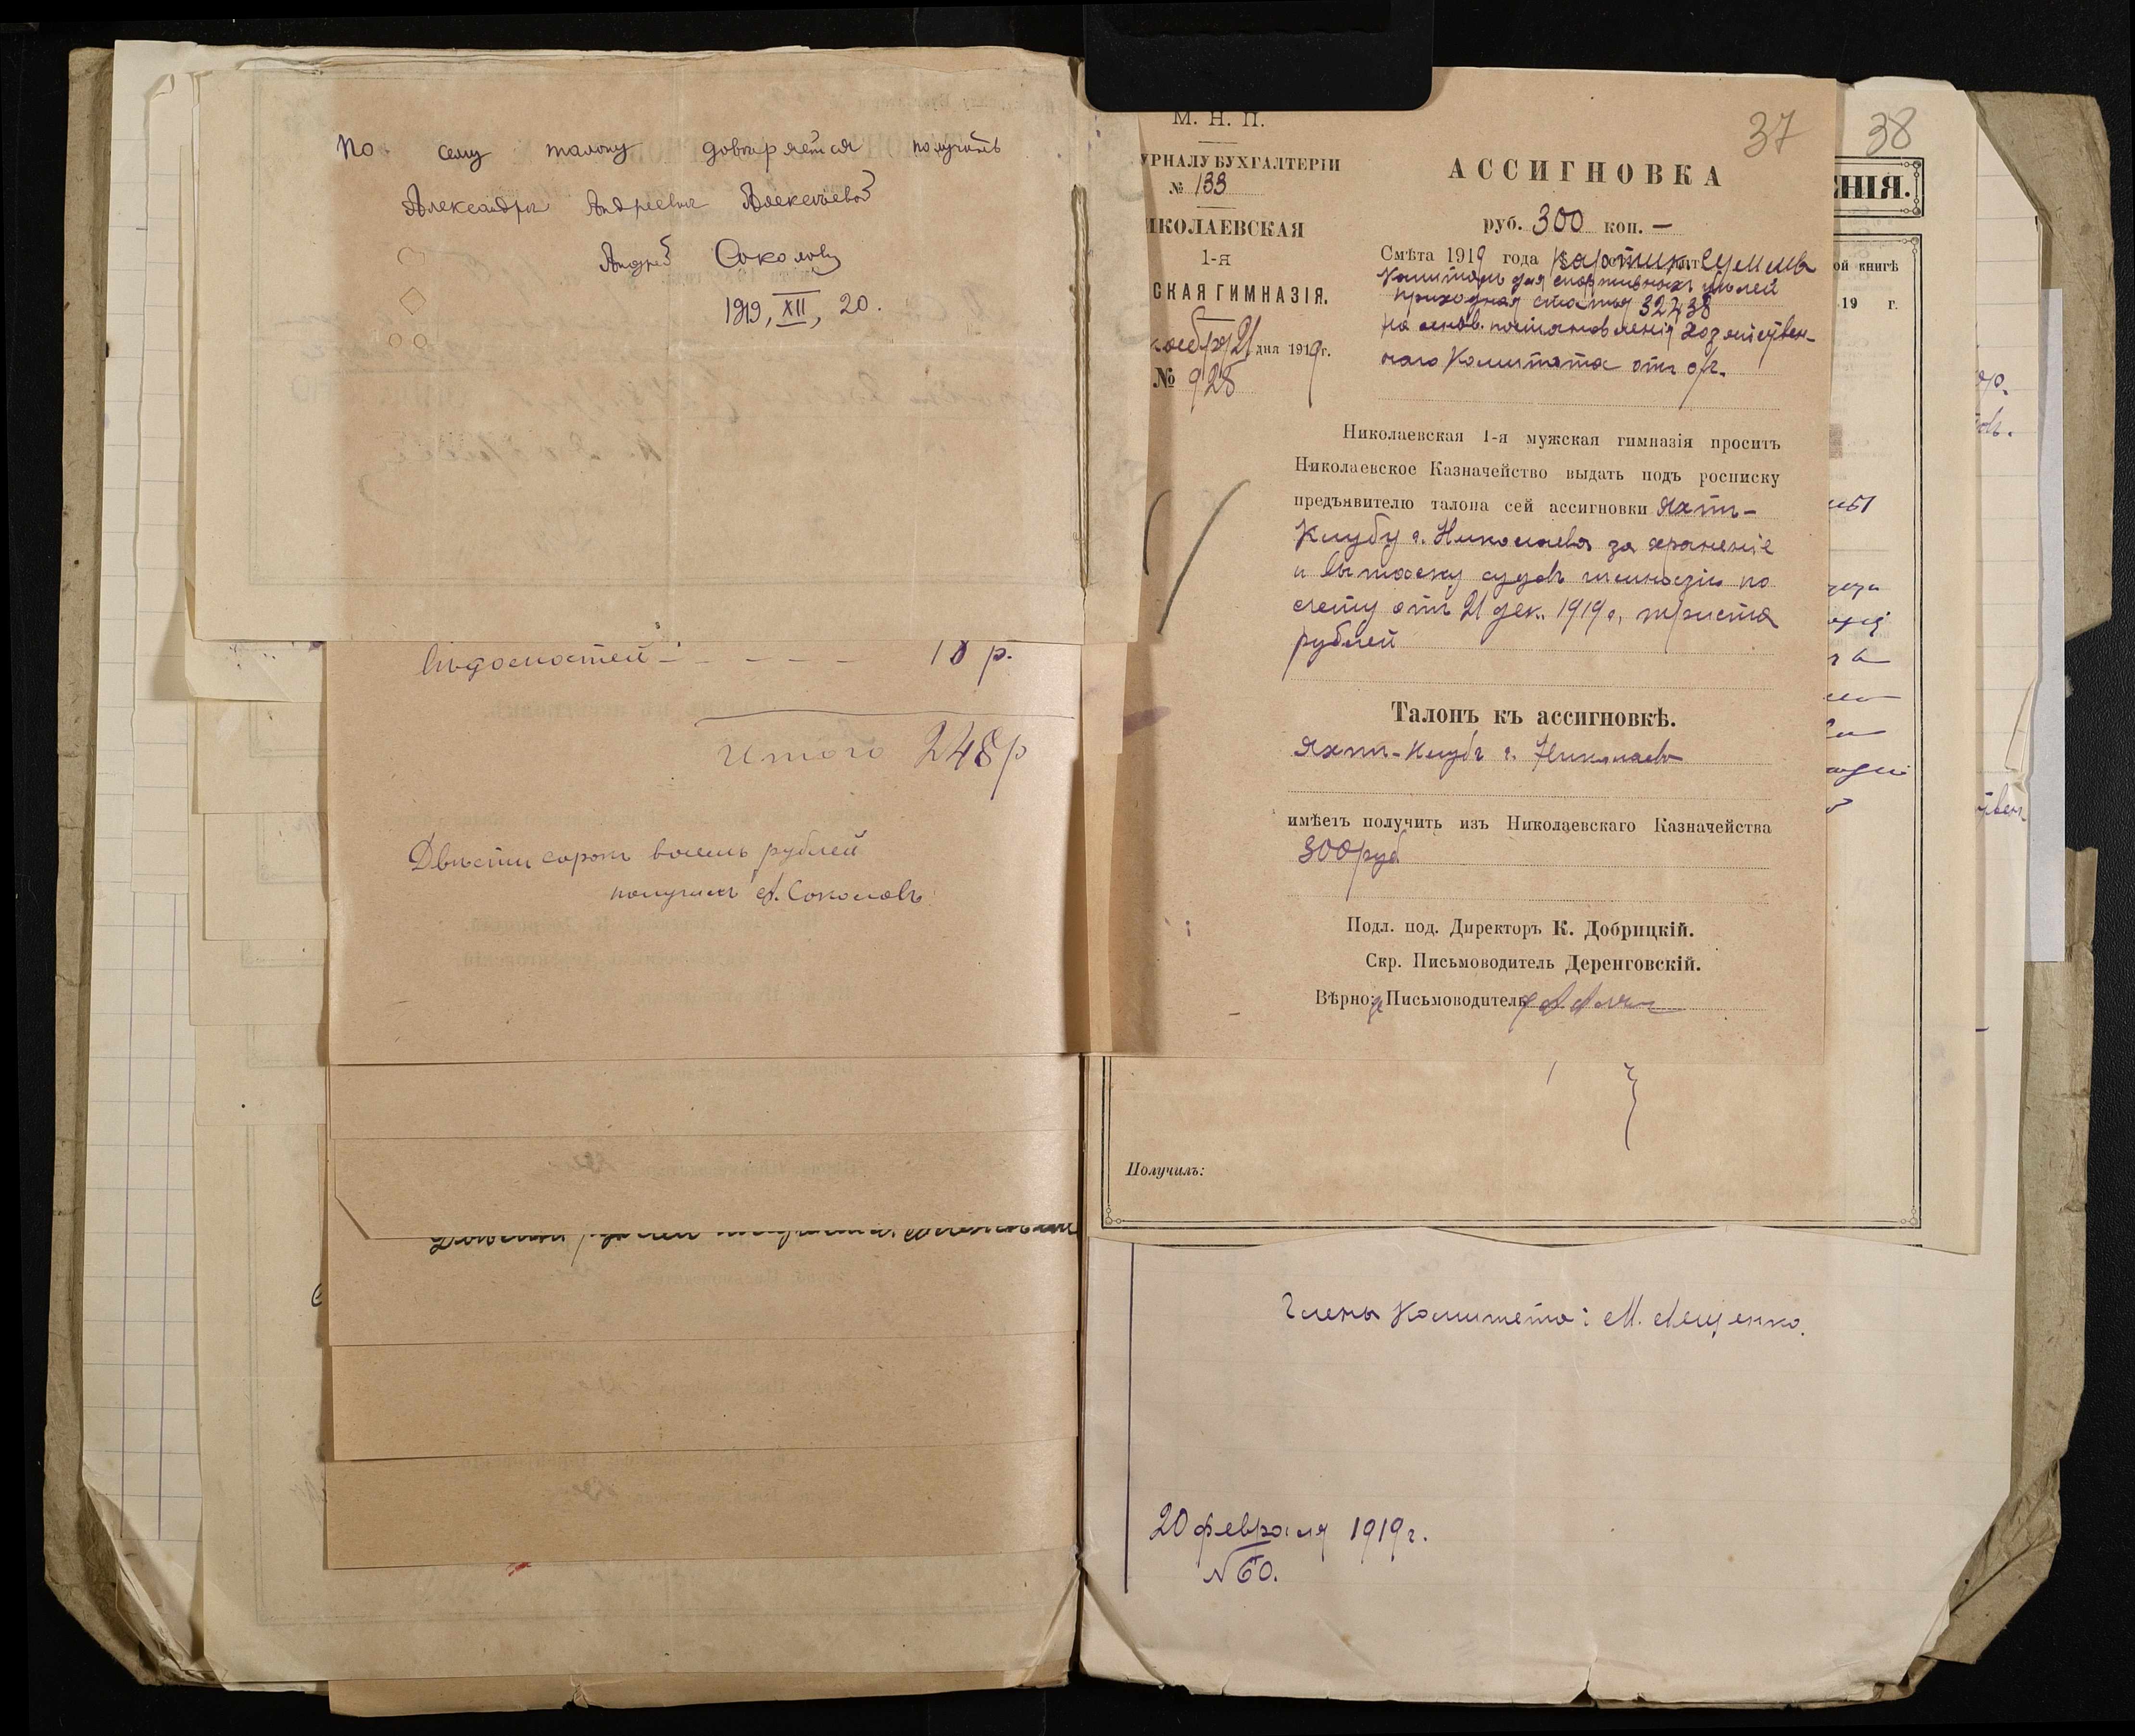 По сему талону довѣряется получить
Александрѣ Андреевнѣ Алексѣевой
Андрей Соколовъ
1919, XII, 20.
Вѣдомостей - - - - - 18 р.
Итого 248 р
Двѣсти сорокъ восемь рублей
получилъ А. Соколовъ
37
38
М. Н. П.
УРНАЛУ БУХГАЛТЕРІИ
№ 133
ИКОЛАЕВСКАЯ
1-я
СКАЯ ГИМНАЗІЯ.
кабря 21 дня 1919 г.
№ 928
АССИГНОВКА
руб. 300 коп. —
Смѣта 1919 года
Комитетъ для спортивныхъ цѣлей
приходная статья 32438
на основ. постановленія Хозяйствен-
наго Комитета отъ
Николаевская 1-я мужская гимназія проситъ
Николаевское Казначейство выдать подъ росписку
предъявителю талона сей ассигновки Яхтъ-
Клубу г. Николаева за храненіе
и вытаску судовъ гимназіи по
счету отъ 21 дек. 1919 г. триста
рублей
Талонъ къ ассигновкѣ.
Яхтъ-Клубъ г. Николаева
имѣетъ получить изъ Николаевскаго Казначейства
300 руб
Подл. под. Директоръ К. Добрицкій.
Скр. Письмоводитель Деренговскій.
Вѣрно: Письмоводитель
НІЯ.
ой книгѣ
19 г.
Получилъ:
Члены Комитета: М. Лещенко.
20 февраля 1919 г.
№ 60.